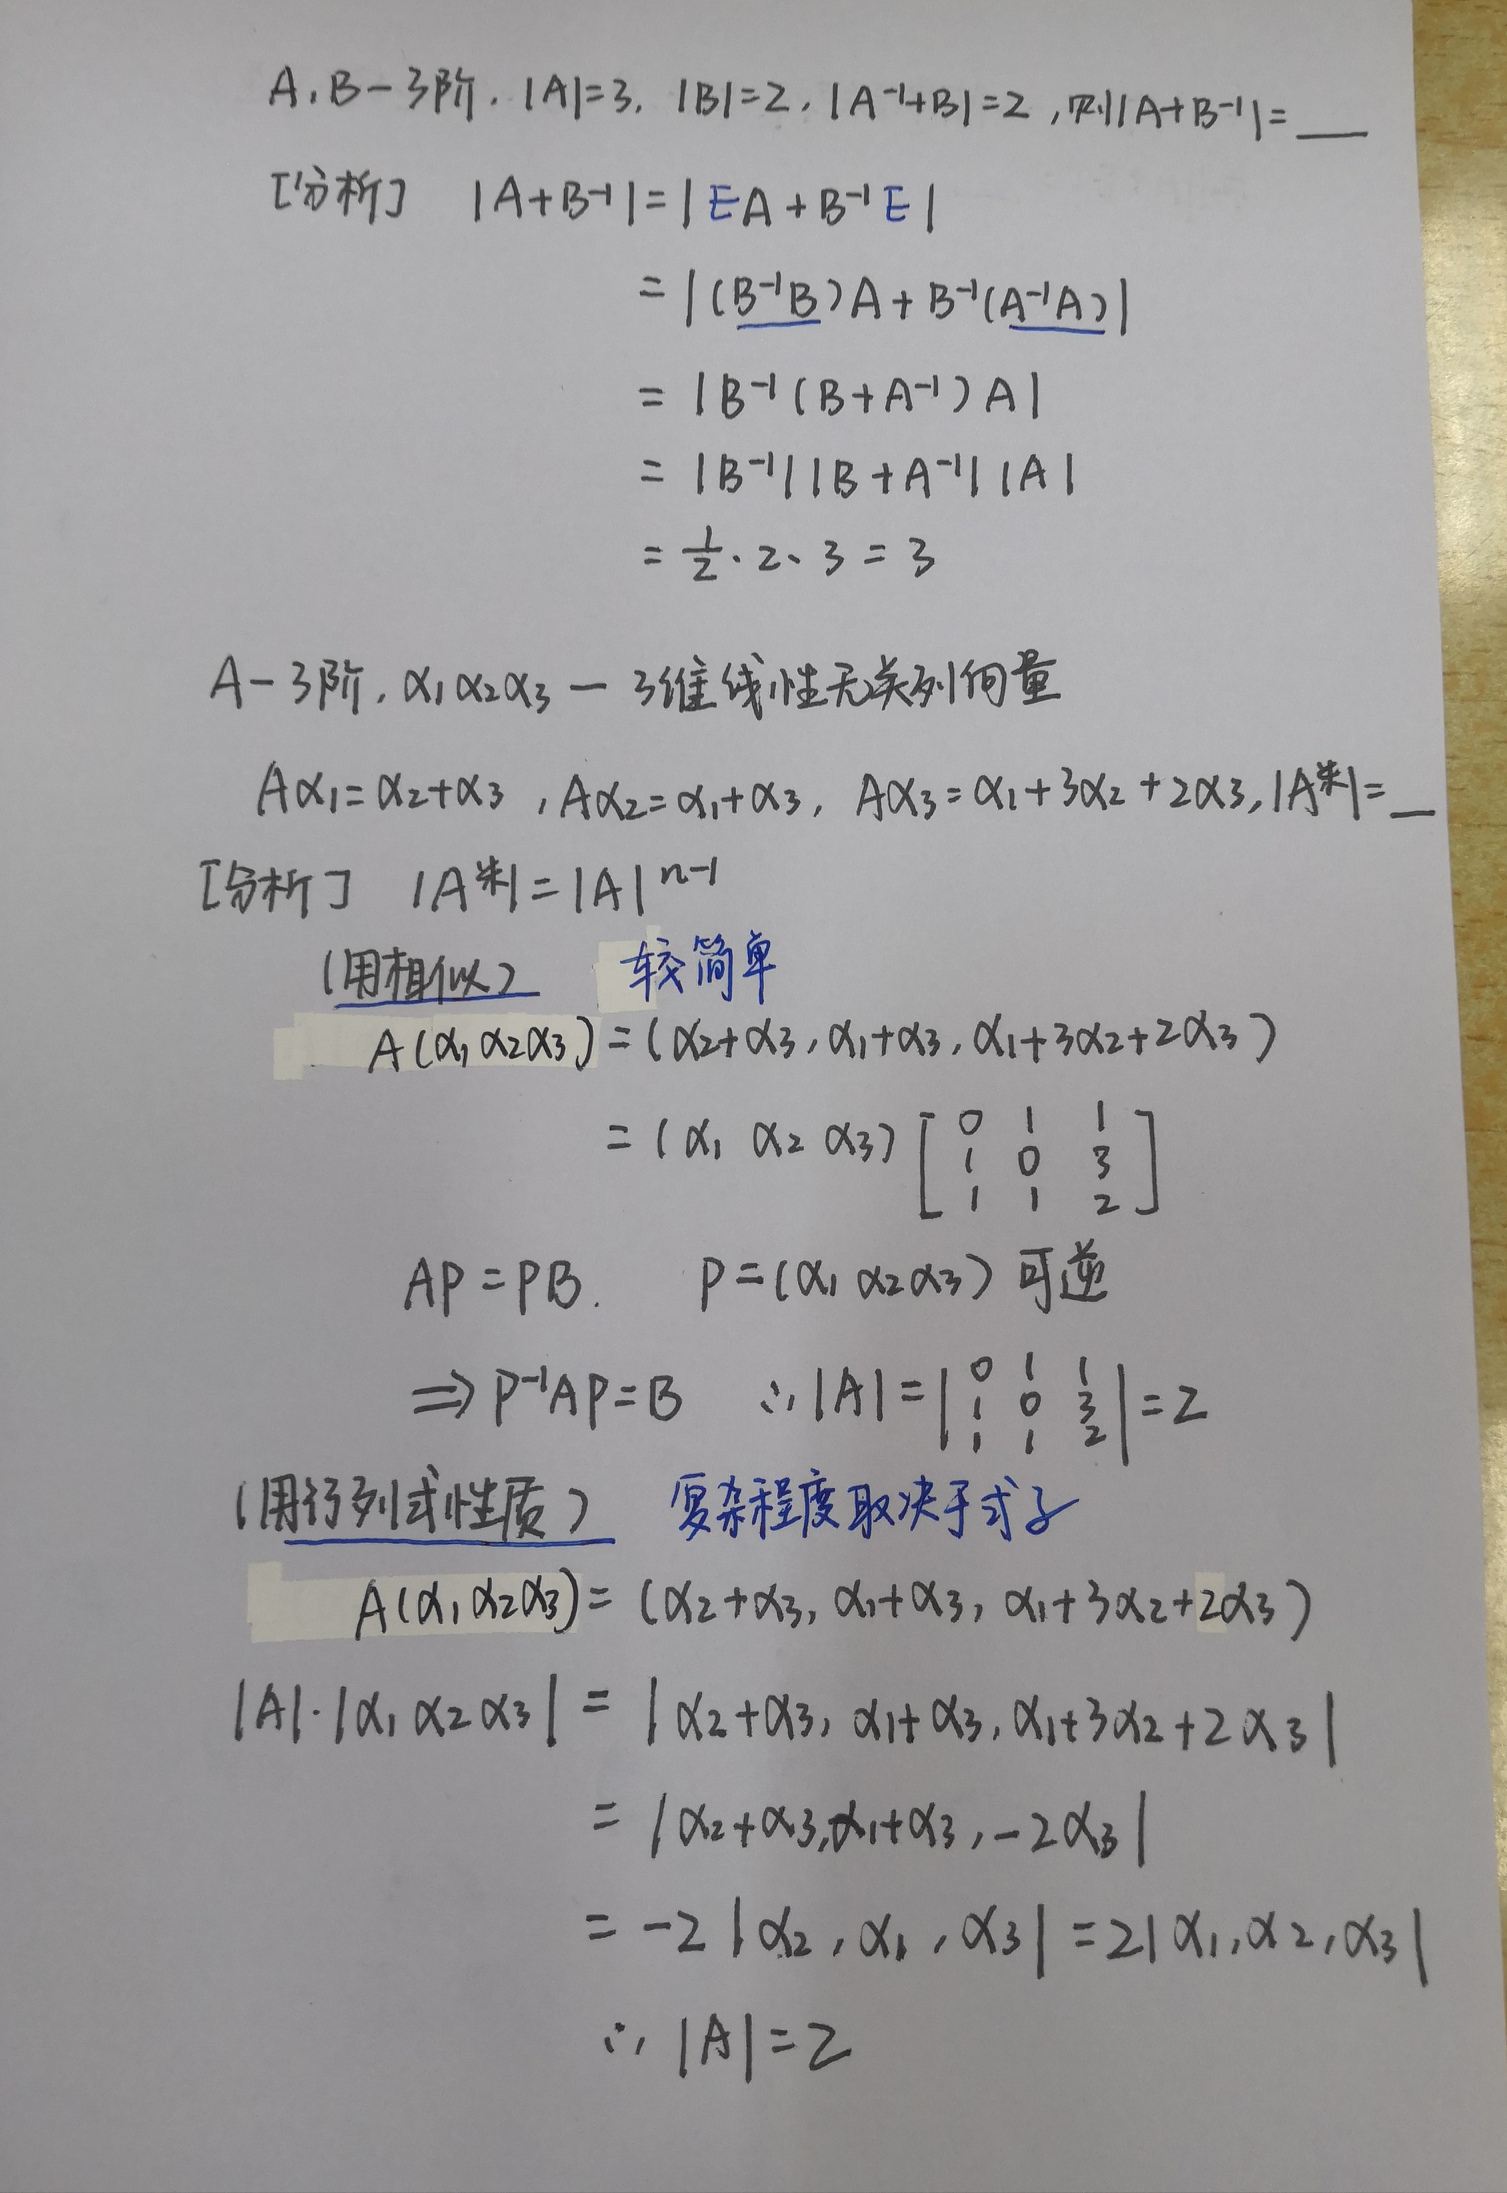 A,B-3阶. |A|=3, |B|=2, |A⁻¹+B|=2, 则|A+B⁻¹|=___
[分析] |A+B⁻¹|=|EA+B⁻¹E|
=|(B⁻¹B)A+B⁻¹(A⁻¹A)|
=|B⁻¹(B+A⁻¹)A|
=|B⁻¹||B+A⁻¹||A|
=1/2·2·3=3
A-3阶, α₁α₂α₃-3维线性无关列向量
Aα₁=α₂+α₃, Aα₂=α₁+α₃, Aα₃=α₁+3α₂+2α₃, |A*|=__
[分析] |A*|=|A|ⁿ⁻¹
(用相似) 较简单
A(α₁α₂α₃)=(α₂+α₃, α₁+α₃, α₁+3α₂+2α₃)
=(α₁ α₂ α₃)[0 1 1
1 0 3
1 1 2]
AP=PB. P=(α₁α₂α₃)可逆
⇒P⁻¹AP=B ∴|A|=|0 1 1
1 0 3
1 1 2|=2
(用行列式性质) 复杂程度取决于式子
A(α₁α₂α₃)=(α₂+α₃, α₁+α₃, α₁+3α₂+2α₃)
|A|·|α₁α₂α₃|=|α₂+α₃, α₁+α₃, α₁+3α₂+2α₃|
=|α₂+α₃, α₁+α₃, -2α₃|
=-2|α₂, α₁, α₃|=2|α₁, α₂, α₃|
∴|A|=2